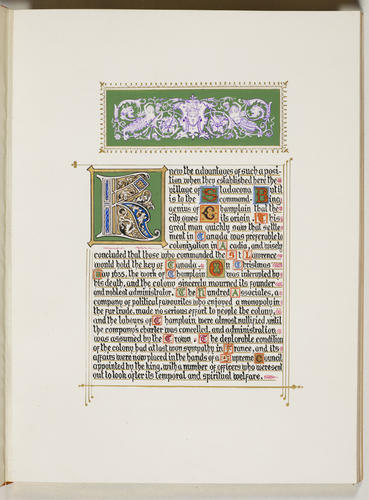 Knew the advantages of such a posi-
tion when they established here the
village of Stadacona. But it
is to the commanding
genius of Champlain that the
city owes its origin. This
great man quickly saw that settle-
ment in Canada was preferable to
colonization in Acadia, and wisely
concluded that those who commanded the St Lawrence
would hold the key of Canada. On Christmas
Day 1635, the work of Champlain was interrupted by
his death, and the colony sincerely mourned its founder
and noblest administrator. The Hundred Associates, a
company of political favourites who enjoyed a monopoly in
the fur trade, made no serious effort to people the colony,
and the labours of Champlain were almost nullified until
the company's charter was cancelled, and administration
was assumed by the Crown. The deplorable condition
of the colony had at last won sympathy in France, and its
affairs were now placed in the hands of a Supreme Council
appointed by the king, with a number of officers who were sent
out to look after its temporal and spiritual welfare.